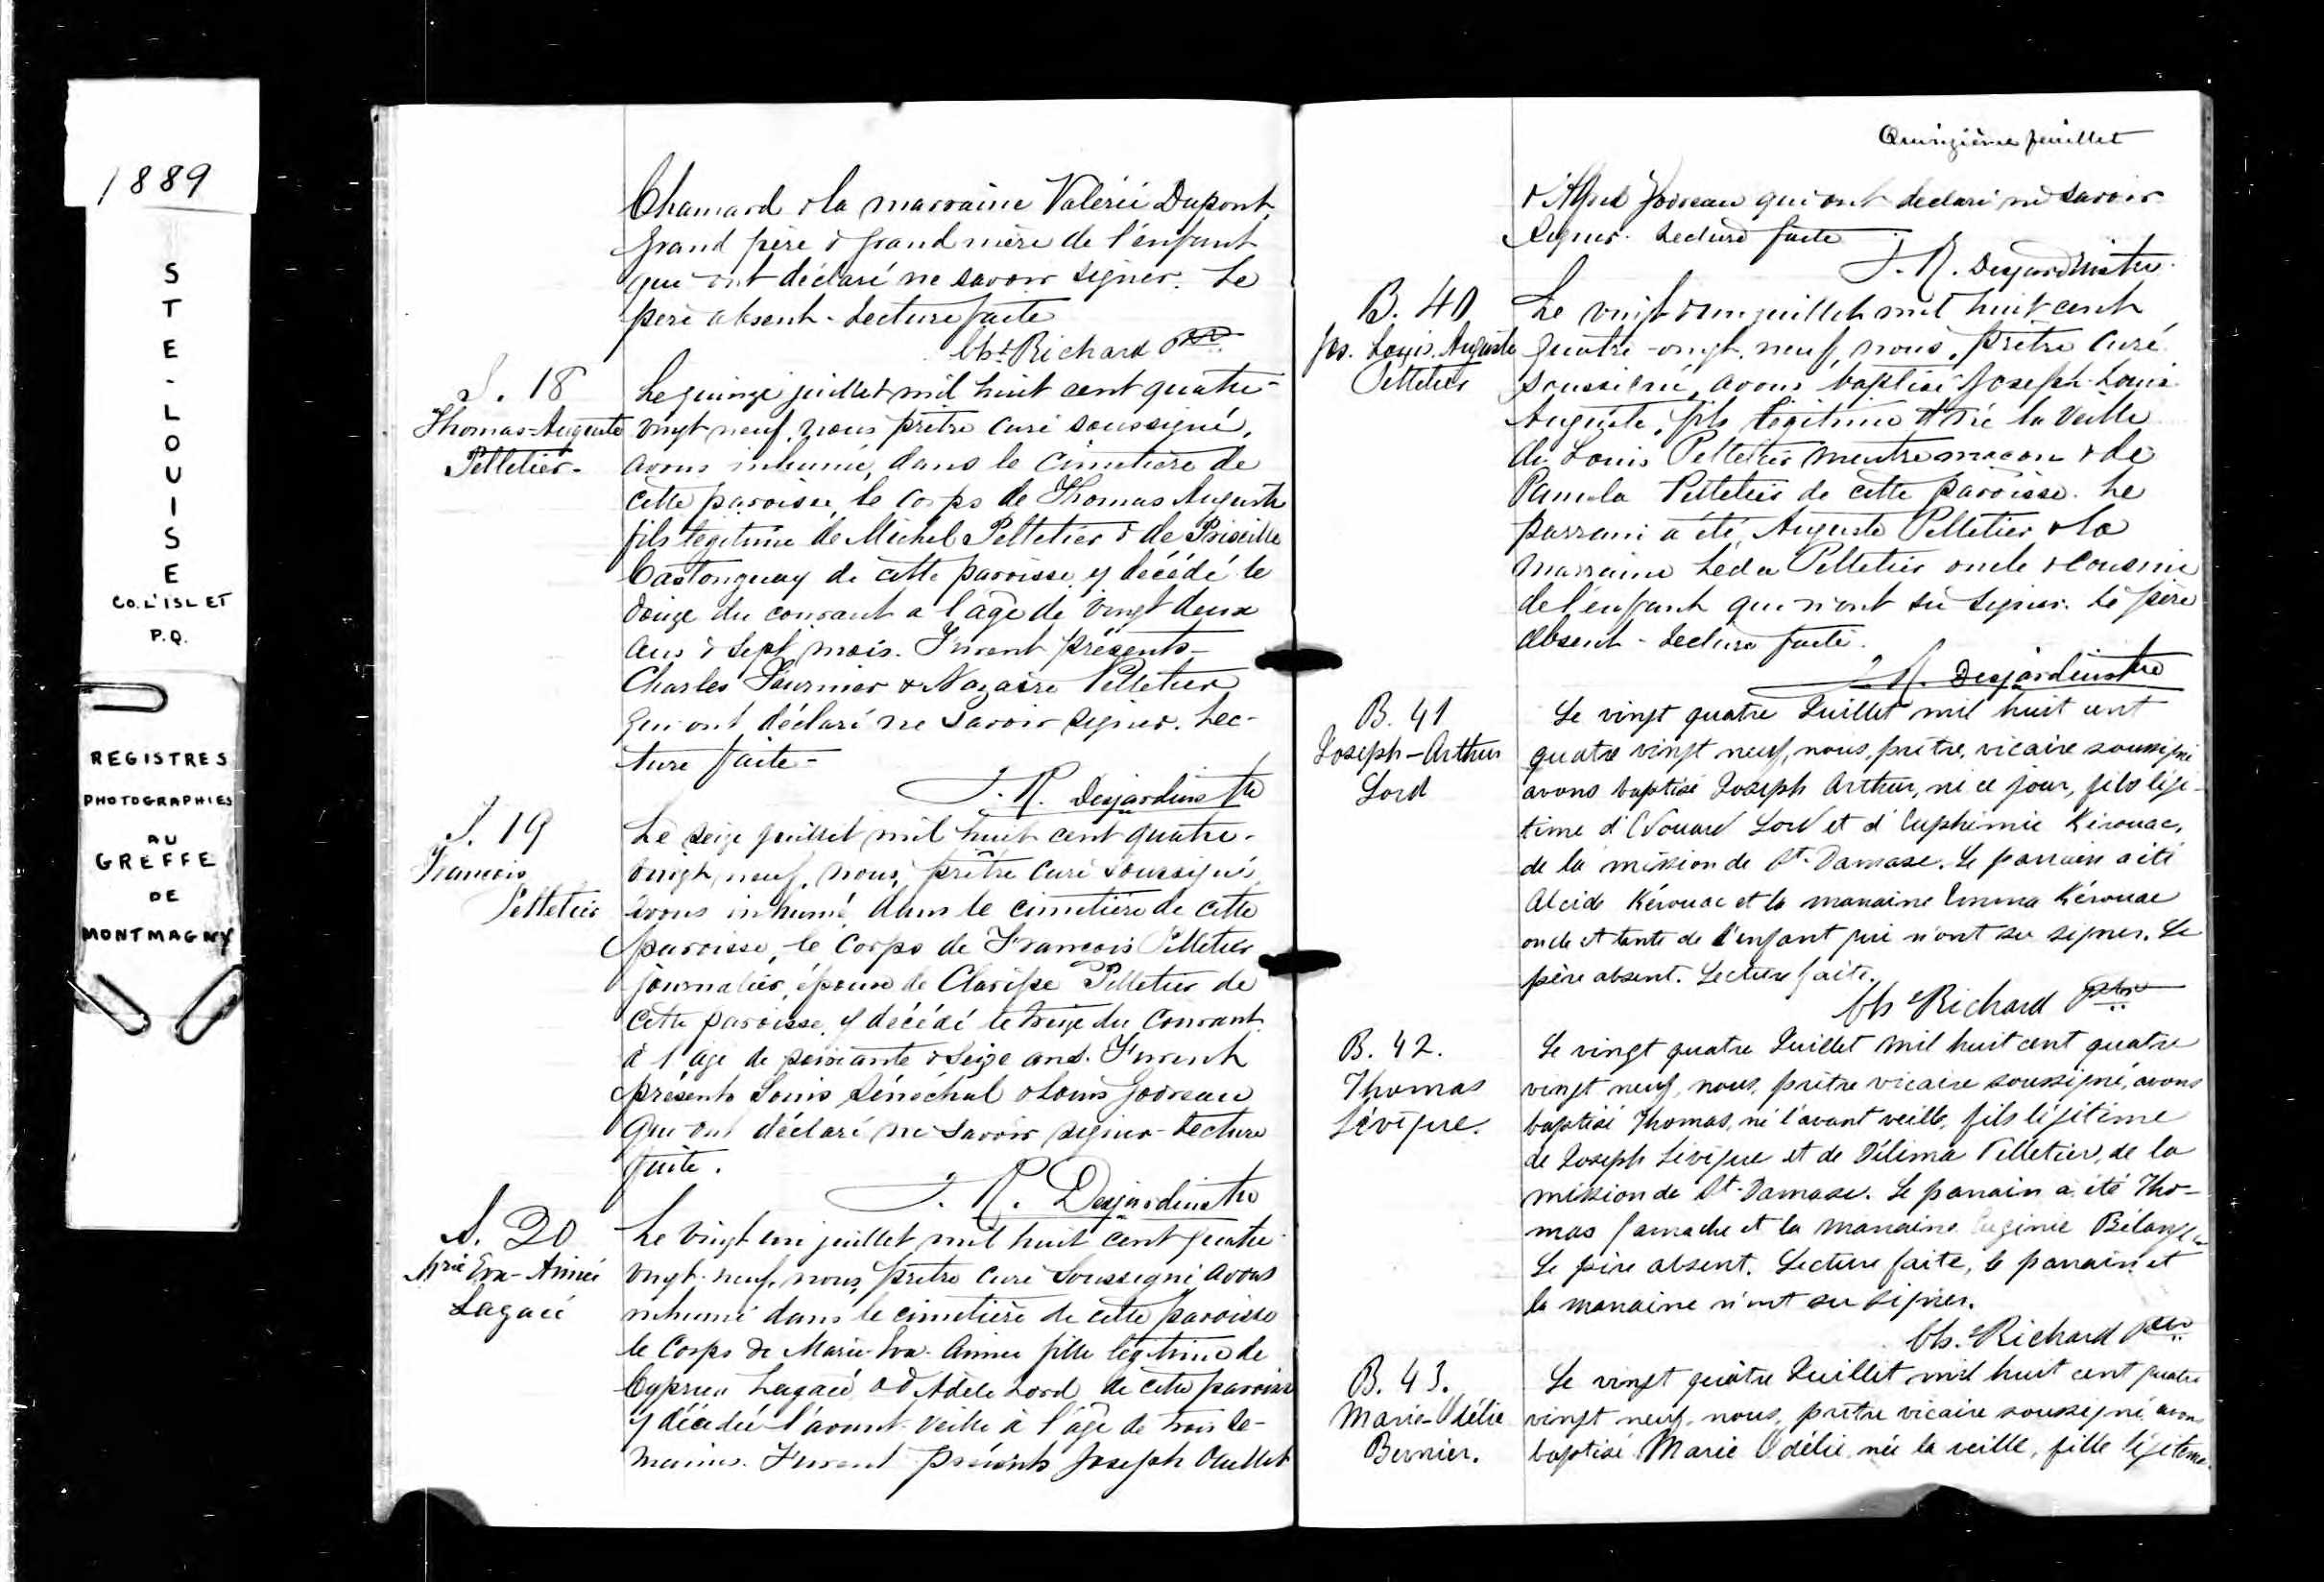 1889
STE-LOUISE
CO. L'ISLET
P.Q.
REGISTRES
PHOTOGRAPHIES
AU
GREFFE
DE
MONTMAGNY
Chamard & la marraine Valérie Dupont
grand père & grand mère de l'enfant
qui ont déclaré ne savoir signer. Le
père absent - Lecture faite
Chs Richard Ptre
S. 18
Thomas-Auguste
Pelletier-
Le quinze juillet mil huit cent quatre-
vingt neuf, nous prêtre curé soussigné,
avons inhumé, dans le cimetière de
cette paroisse, le corps de Thomas Auguste
fils légitime de Michel Pelletier & de Priscille
Castonguay de cette paroisse y décédé le
douze du courant a l'âge de vingt deux
ans & sept mois. Furent présents-
Charles Fournier & Nazaire Pelletier
qui ont déclaré ne savoir signer. Lec-
ture faite-
J. R. Desjardins Ptre
S. 19
Francois
Pelletier
Le seize juillet mil huit cent quatre-
vingt neuf, nous, prêtre curé soussigné
avons inhumé dans le cimetière de cette
paroisse, le corps de François Pelletier
journalier, époux de Clarisse Pelletier de
cette paroisse, y décédé le treize du courant
à l'âge de soixante & seize ans. Furent
présents Louis Sénéchal & Louis Godreau
qui ont déclaré ne savoir signer - Lecture
faite.
J. R. Desjardins Ptre
S. 20
Mrie Eva-Aimée
Lagacé
Le vingt un juillet mil huit cent quatre
vingt-neuf, nous, prêtre curé soussigné avons
inhumé dans le cimetière de cette paroisse
le corps de Marie-Eva-Aimée fille légitime de
Cyprien Lagacé & d'Adèle Lord de cette paroisse
y décédée l'avant-veille à l'âge de trois se-
maines. Furent présents Joseph Ouellet
Quinzième feuillet
& Alfred Godreau qui ont déclaré ne savoir
signer. Lecture faite
J. R. Desjardins Ptre
B. 40
Jos. Louis. Auguste
Pelletier
Le vingt & un juillet mil huit cent
quatre-vingt-neuf, nous, prêtre curé
soussigné, avons baptisé Joseph-Louis
Auguste, fils légitime né la veille
de Louis Pelletier maitre maçon & de
Pamela Pelletier de cette paroisse. Le
parrain a été Auguste Pelletier & la
marraine Léda Pelletier oncle & cousine
de l'enfant qui n'ont su signer. Le père
absent - Lecture faite.
J. R. Desjardins Ptre
B. 41
Joseph-Arthur
Lord
Le vingt quatre Juillet mil huit cent
quatre vingt neuf, nous, prêtre, vicaire soussigné
avons baptisé Joseph Arthur, né ce jour, fils légi-
time d'Edouard Lord et d'Euphémie Kérouac,
de la mission de St-Damase. Le parrain a été
Alcide Kérouac et la marraine Emma Kérouac
oncle et tante de l'enfant qui n'ont su signer. Le
père absent. Lecture faite.
Chs Richard Ptre
B. 42.
Thomas
Lévêque.
Le vingt quatre Juillet mil huit cent quatre
vingt neuf, nous, prêtre vicaire soussigné, avons
baptisé Thomas, né l'avant veille, fils légitime
de Joseph Lévêque et de Délima Pelletier, de la
mission de St-Damase. Le parrain a été Tho-
mas Gamache et la marraine Eugénie Bélanger
Le père absent. Lecture faite, le parrain et
la marraine n'ont su signer.
Chs Richard Ptre
B. 43.
Marie Odélie
Bernier.
Le vingt quatre Juillet mil huit cent quatre
vingt neuf, nous, prêtre vicaire soussigné avons
baptisé Marie Odélie née la veille, fille légitime